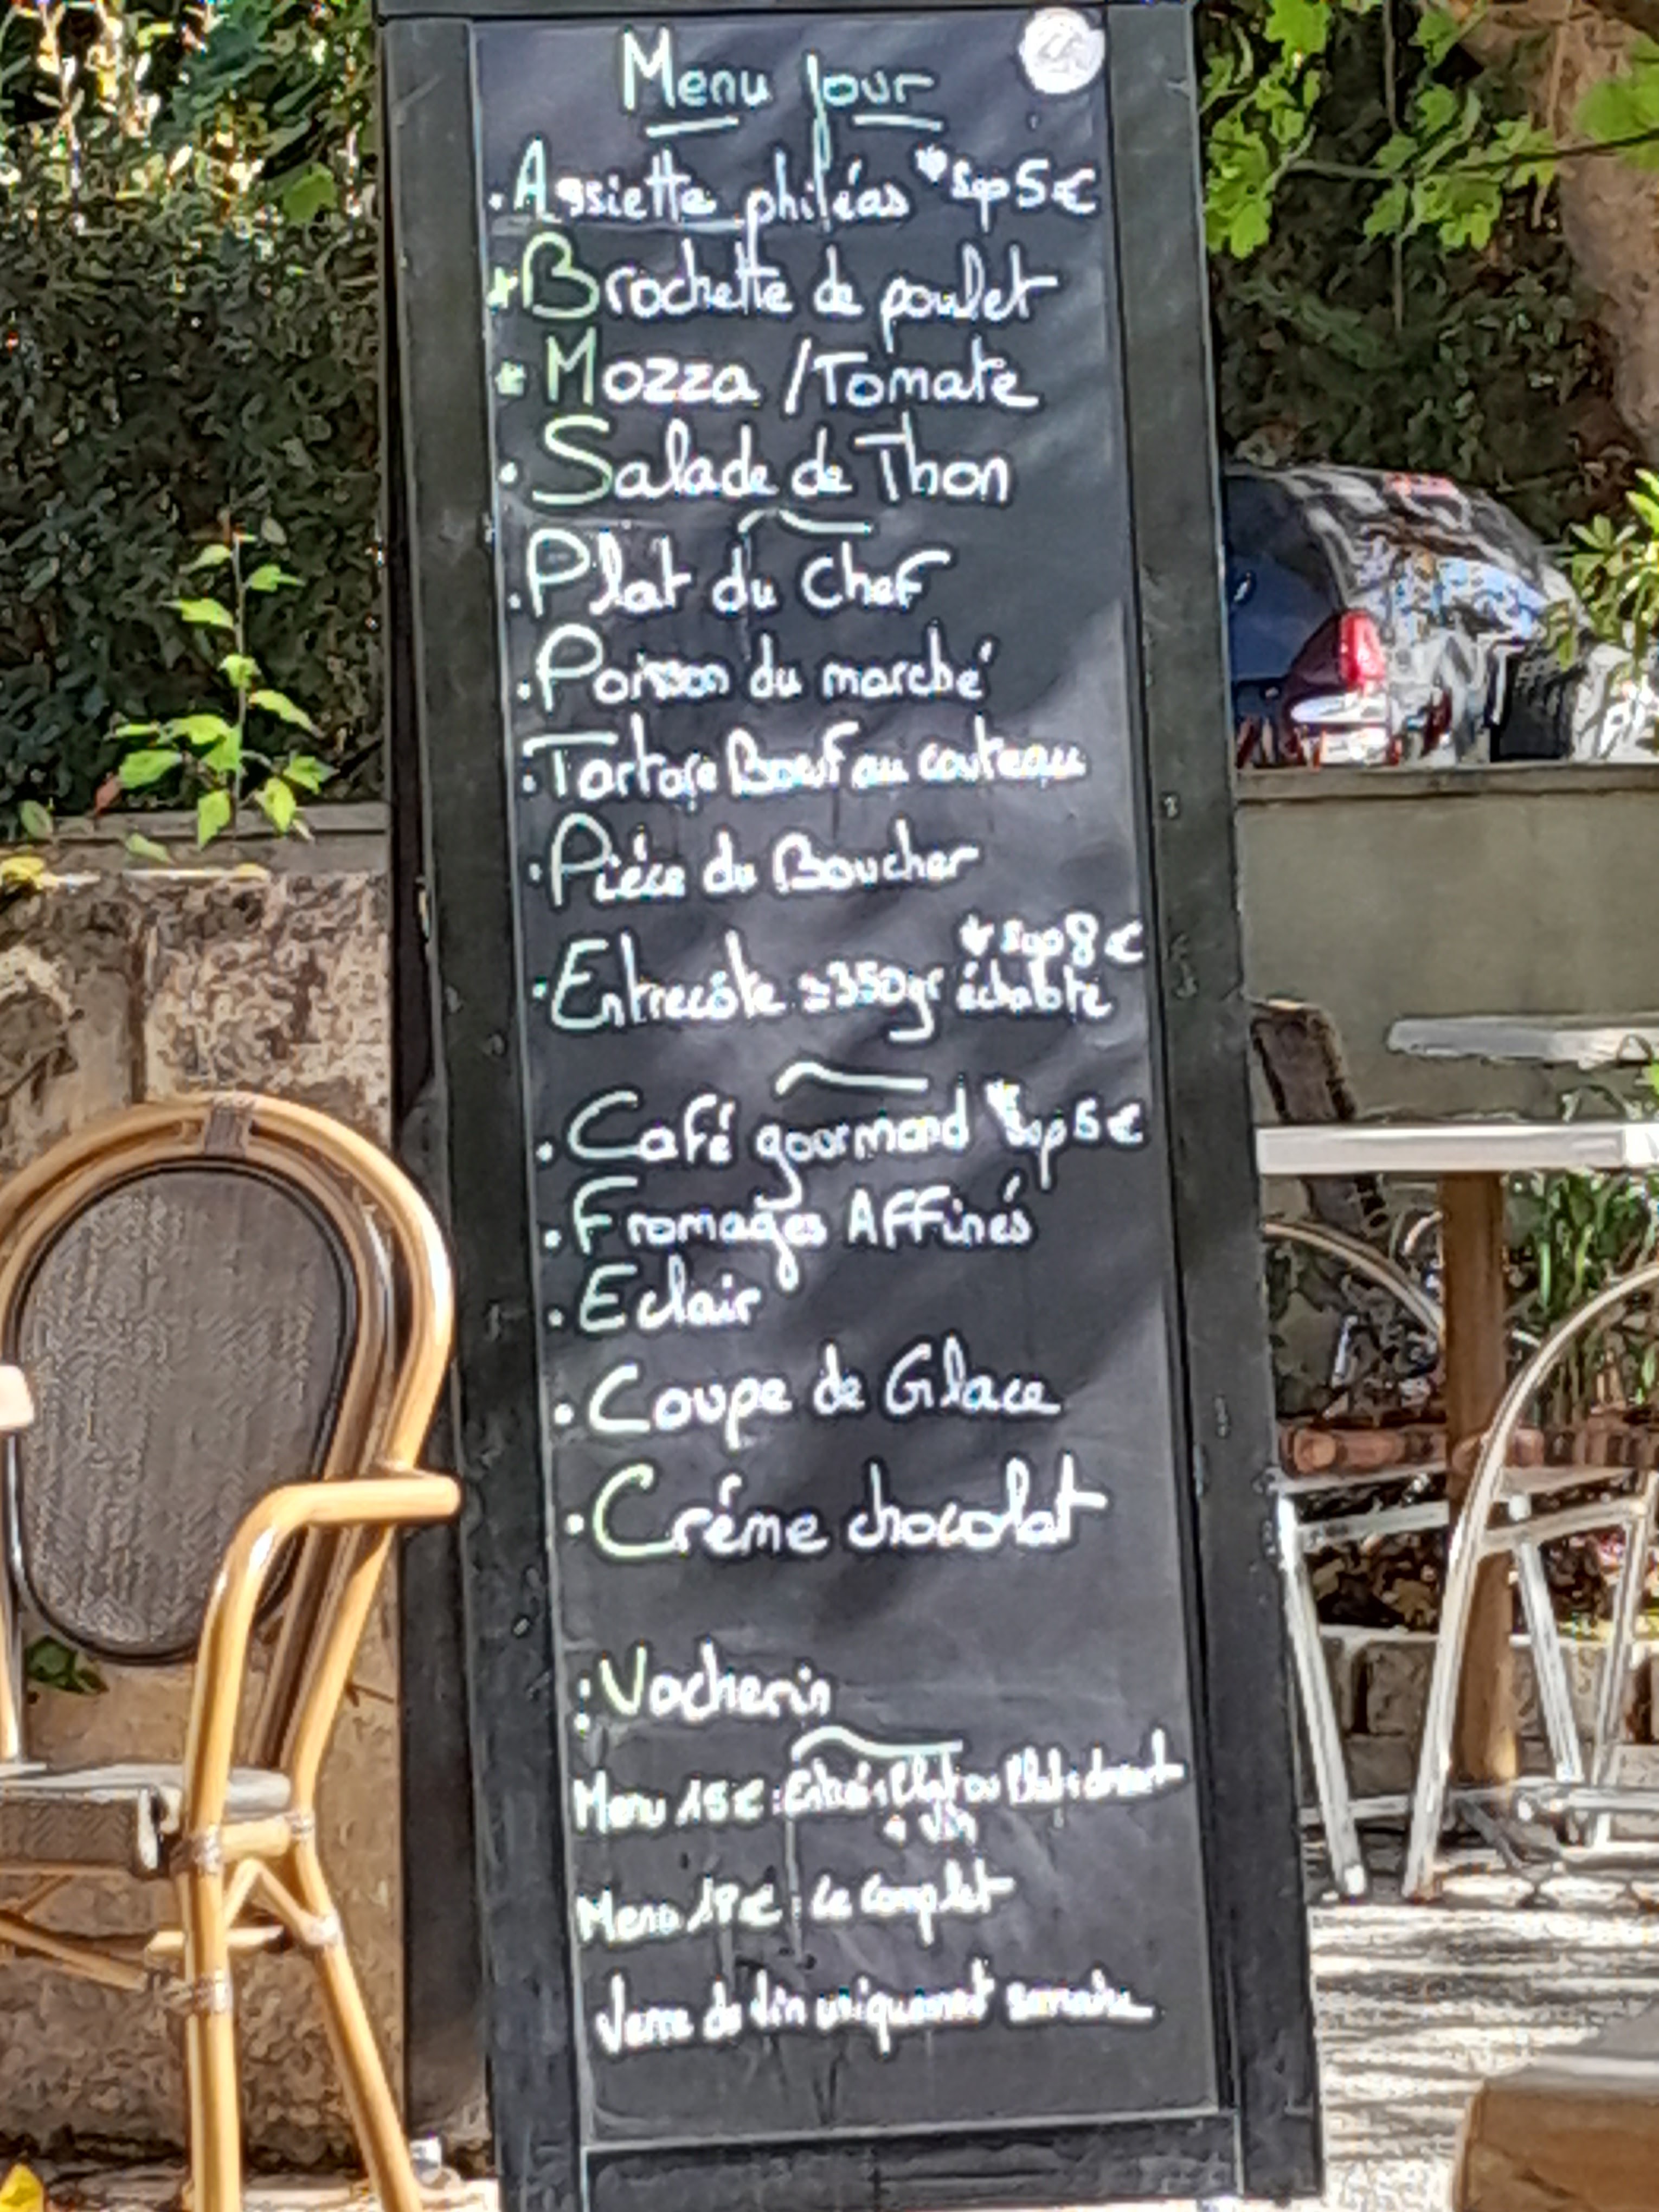 Menu Jour
. Assiette philéas * Sup 5€
* Brochette de poulet
* Mozza / Tomate
. Salade de Thon
. Plat du Chef
. Poisson du marché
. Tartare Boeuf au couteau
. Piéce du Boucher
* Sup 8€
. Entrecôte ≃350gr échalote
. Café gourmand * Sup 5€
. Fromages Affinés
. Eclair
. Coupe de Glace
. Créme chocolat
: Vacherin
Menu 15€ : Entrée + Plat ou Plat + dessert
+ Vin
Menu 19€ : Le complet
Verre de Vin uniquement semaine